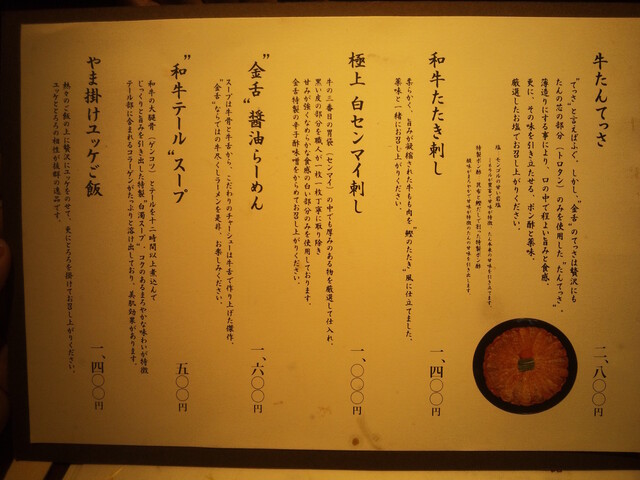 牛たんてっさ
"てっさ"と言えばふぐ。しかし、"金舌"のてっさは贅沢にも
たんの芯の部分（トロタン）のみを使用した"たんてっさ"。
薄造りにする事により、口の中で程よい旨みと食感、
更に、その味を引き立たせる、ポン酢と薬味、
厳選したお塩でお召し上がりください。
二、八〇〇円
和牛たたき刺し
柔らかく、旨みが凝縮された牛もも肉を"鰹のたたき"風に仕立てました。
薬味と一緒にお召し上がりください。
一、四〇〇円
極上 白センマイ刺し
牛の三番目の胃袋（センマイ）の中でも厚みのある物を厳選して仕入れ、
黒い皮の部分を職人が一枚一枚丁寧に取り除き
甘みが強くなめらかな食感の白い部分のみを使用しております。
金舌特製の辛子酢味噌をからめてお召し上がりください。
一、〇〇〇円
"金舌"醤油らーめん
スープは牛骨と牛舌から、こだわりのチャーシューは牛舌で作り上げた傑作。
"金舌"ならではの牛尽くしラーメンを是非、お楽しみください。
一、六〇〇円
"和牛テール"スープ
和牛の大腿骨（ゲンコツ）とテールを十二時間以上煮込んで
じっくりと旨みを引き出した特製"白濁スープ"。コクのあるまろやかな味わいが特徴
テール部に含まれるコラーゲンがたっぷりと溶け出しており、美肌効果があります。
五〇〇円
やま掛けユッケご飯
熱々のご飯の上に贅沢にユッケをのせて、更にとろろを掛けてお召し上がりください。
ユッケととろろの相性が抜群の逸品です。
一、四〇〇円